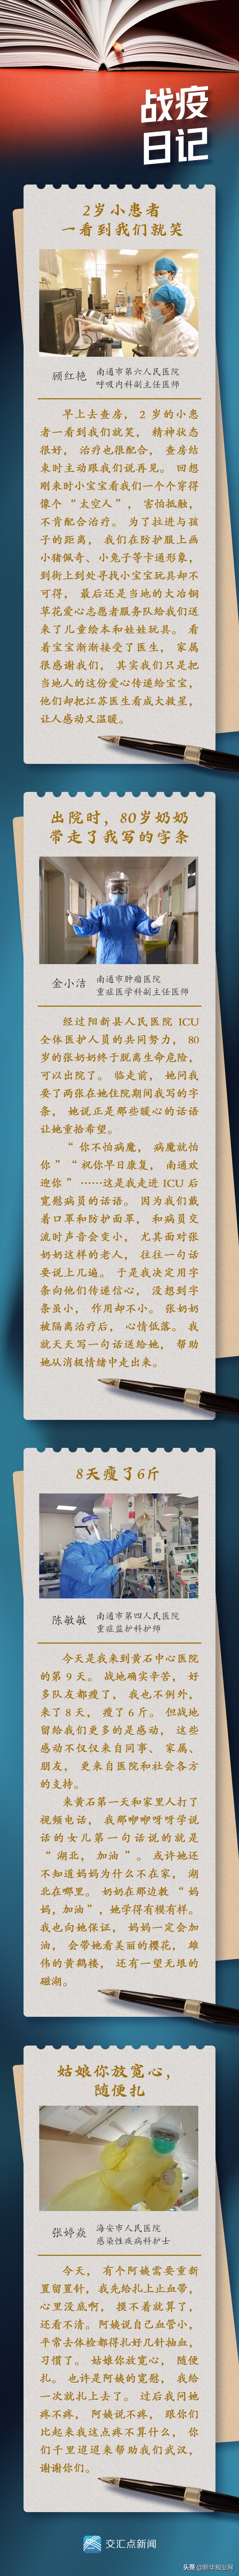 战疫
日记
2岁小患者
一看到我们就笑
顾红艳
南通市第六人民医院
呼吸内科副主任医师
早上去查房，2岁的小患
者一看到我们就笑，精神状态
很好，治疗也很配合，查房结
束时主动跟我们说再见。回想
刚来时小宝宝看我们一个个穿得
像个“太空人”，害怕抵触，
不肯配合治疗。为了拉进与孩
子的距离，我们在防护服上画
小猪佩奇、小兔子等卡通形象，
到街上到处寻找小宝宝玩具却不
可得，最后还是当地的大冶铜
草花爱心志愿者服务队给我们送
来了儿童绘本和娃娃玩具。看
着宝宝渐渐接受了医生，家属
很感谢我们，其实我们只是把
当地人的这份爱心传递给宝宝，
他们却把江苏医生看成大救星，
让人感动又温暖。
出院时，80岁奶奶
带走了我写的字条
金小洁
南通市肿瘤医院
重症医学科副主任医师
经过阳新县人民医院 ICU
全体医护人员的共同努力，80
岁的张奶奶终于脱离生命危险，
可以出院了。临走前，她问我
要了两张在她住院期间我写的字
条，她说正是那些暖心的话语
让她重拾希望。
“你不怕病魔，病魔就怕
你”“祝你早日康复，南通欢
迎你”……这是我走进 ICU 后
宽慰病员的话语。因为我们戴
着口罩和防护面罩，和病员交
流时声音会变小，尤其面对张
奶奶这样的老人，往往一句话
要说上几遍。于是我决定用字
条向他们传递信心，没想到字
条虽小，作用却不小。张奶奶
被隔离治疗后，心情低落。我
就天天写一句话送给她，帮助
她从消极情绪中走出来。
8天瘦了6斤
陈敏敏
南通市第四人民医院
重症监护科护师
今天是我来到黄石中心医院
的第 9 天。战地确实辛苦，好
多队友都瘦了，我也不例外，
来了 8 天，瘦了 6 斤。但战地
留给我们更多的是感动，这些
感动不仅仅来自同事、家属、
朋友，更来自医院和社会各方
的支持。
来黄石第一天和家里人打了
视频电话，我那咿咿呀呀学说
话的女儿第一句话说的就是
“湖北，加油”。或许她还
不知道妈妈为什么不在家，湖
北在哪里。奶奶在那边教“妈
妈，加油”，她学得有模有样。
我也向她保证，妈妈一定会加
油，会带她看美丽的樱花，雄
伟的黄鹤楼，还有一望无垠的
磁湖。
姑娘你放宽心，
随便扎
张婷焱
海安市人民医院
感染性疾病科护士
今天，有个阿姨需要重新
置留置针，我先给扎上止血带，
心里没底啊，摸不着就算了，
还看不清。阿姨说自己血管小，
平常去体检都得扎好几针抽血，
习惯了。姑娘你放宽心，随便
扎。也许是阿姨的宽慰，我给
一次就扎上去了。过后我问她
疼不疼，阿姨说不疼，跟你们
比起来我这点疼不算什么，你
们千里迢迢来帮助我们武汉，
谢谢你们。
交汇点新闻
头条 @新华报业网